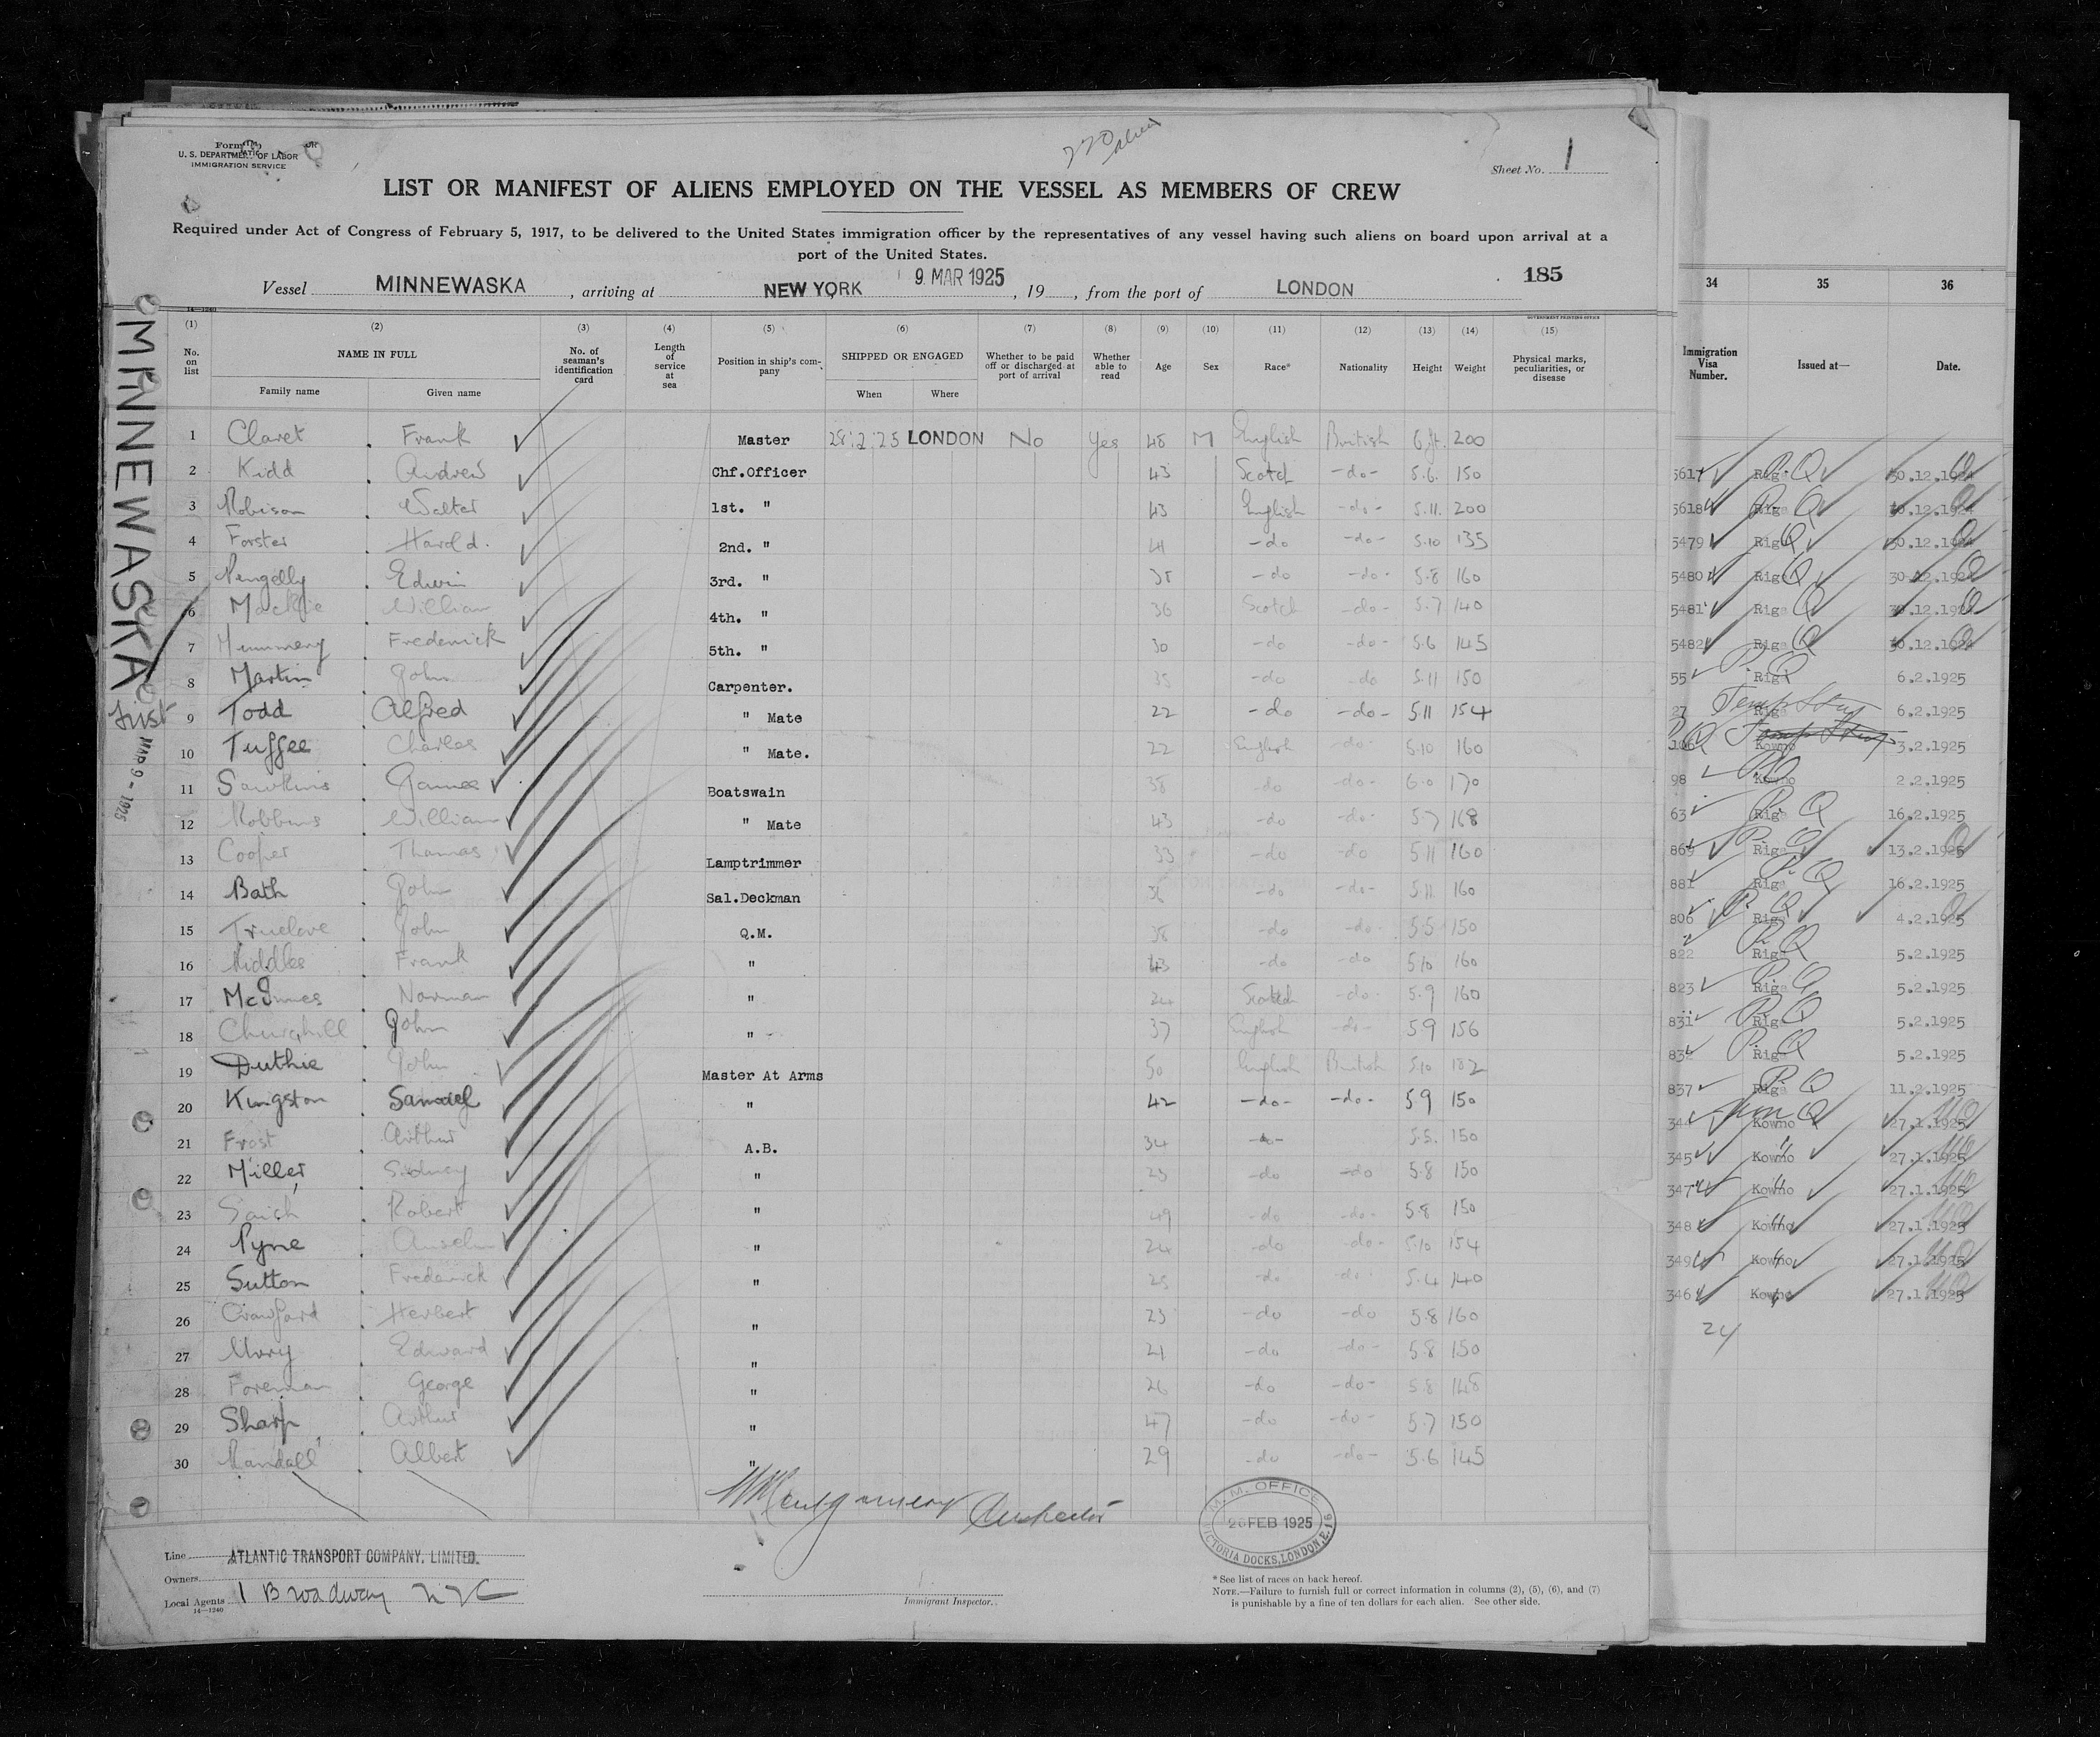 U. S. DEPARTMENT OF LABOR
IMMIGRATION SERVICE
Sheet No. 1
LIST OR MANIFEST OF ALIENS EMPLOYED ON THE VESSEL AS MEMBERS OF CREW
Required under Act of Congress of February 5, 1917, to be delivered to the United States immigration officer by the representatives of any vessel having such aliens on board upon arrival at a
port of the United States.
Vessel MINNEWASKA, arriving at NEW YORK 9 MAR 1925, 19, from the port of LONDON 185
14—1240 GOVERNMENT PRINTING OFFICE
(1) (2) (3) (4) (5) (6) (7) (8) (9) (10) (11) (12) (13) (14) (15)
No. on list NAME IN FULL Family name Given name No. of seaman's identification card Length of service at sea Position in ship's company SHIPPED OR ENGAGED When Where Whether to be paid off or discharged at port of arrival Whether able to read Age Sex Race* Nationality Height Weight Physical marks, peculiarities, or disease
1 Claret Frank Master 28.2.25 LONDON No Yes 48 M English British 6 ft. 200
2 Kidd Andrew Chf.Officer 43 Scotch -do- 5.6. 150
3 Robison Walter 1st. " 43 English -do- 5.11. 200
4 Forster Harold. 2nd. " 41 -do -do- 5.10 135
5 Pengelly Edwin 3rd. " 38 -do -do- 5.8 160
6 Mackie William 4th. " 36 Scotch -do- 5.7 140
7 Mummery Frederick 5th. " 30 -do -do- 5.6 145
8 Martin John Carpenter. 35 -do -do 5.11 150
9 Todd Alfred " Mate 22 -do -do- 5.11 154
10 Tuffee Charles " Mate. 22 English -do- 5.10 160
11 Sawkins James Boatswain 38 -do -do- 6.0 170
12 Robbins William " Mate 43 -do -do- 5.7 168
13 Cooper Thomas Lamptrimmer 33 -do -do 5.11 160
14 Bath John Sal.Deckman -do -do- 5.11. 160
15 Truelove John Q.M. 38 -do -do- 5.5 150
16 Frank " 43 -do -do 5.10 160
17 McInnes Norman " 24 Scotch -do- 5.9 160
18 Churchill John " 37 English -do- 5.9 156
19 Duthie John Master At Arms 50 English British 5.10 182
20 Kingston Samuel " 42 -do- -do- 5.9 150
21 Frost Arthur A.B. 34 -do- 5.5. 150
22 Miller Sidney " 23 -do -do 5.8 150
23 Saich Robert " 49 -do -do- 5.8 150
24 Pyne Anselm " 24 -do -do- 5.10 154
25 Sutton Frederick " 25 -do -do- 5.4 140
26 Crawford Herbert " 23 -do -do 5.8 160
27 Edward " 21 -do -do- 5.8 150
28 Foreman George " 26 -do -do- 5.8 148
29 Sharp Arthur " 47 -do -do- 5.7 150
30 Randall Albert " 29 -do -do- 5.6 145
MINNEWASKA
first
MAR 9 - 1925
M. M. OFFICE
26 FEB 1925
VICTORIA DOCKS, LONDON, E.16
Line ATLANTIC TRANSPORT COMPANY, LIMITED.
Owners
Local Agents 1 Broadway NYC
14—1240
Immigrant Inspector.
* See list of races on back hereof.
NOTE.—Failure to furnish full or correct information in columns (2), (5), (6), and (7)
is punishable by a fine of ten dollars for each alien. See other side.
34 35 36
Immigration Visa Number. Issued at— Date.
5617 Riga 30.12.1924
5618 Riga 30.12.1924
5479 Riga 30.12.1924
5480 Riga 30.12.1924
5481 Riga 30.12.1924
5482 Riga 30.12.1924
55 Riga 6.2.1925
27 Riga 6.2.1925
106 Kowno 3.2.1925
98 Kowno 2.2.1925
63 Riga 16.2.1925
869 Riga 13.2.1925
881 Riga 16.2.1925
806 Riga 4.2.1925
822 Riga 5.2.1925
823 Riga 5.2.1925
831 Riga 5.2.1925
832 Riga 5.2.1925
837 Riga 11.2.1925
344 Kowno 27.1.1925
345 Kowno 27.1.1925
347 Kowno 27.1.1925
348 Kowno 27.1.1925
349 Kowno 27.1.1925
346 Kowno 27.1.1925
24